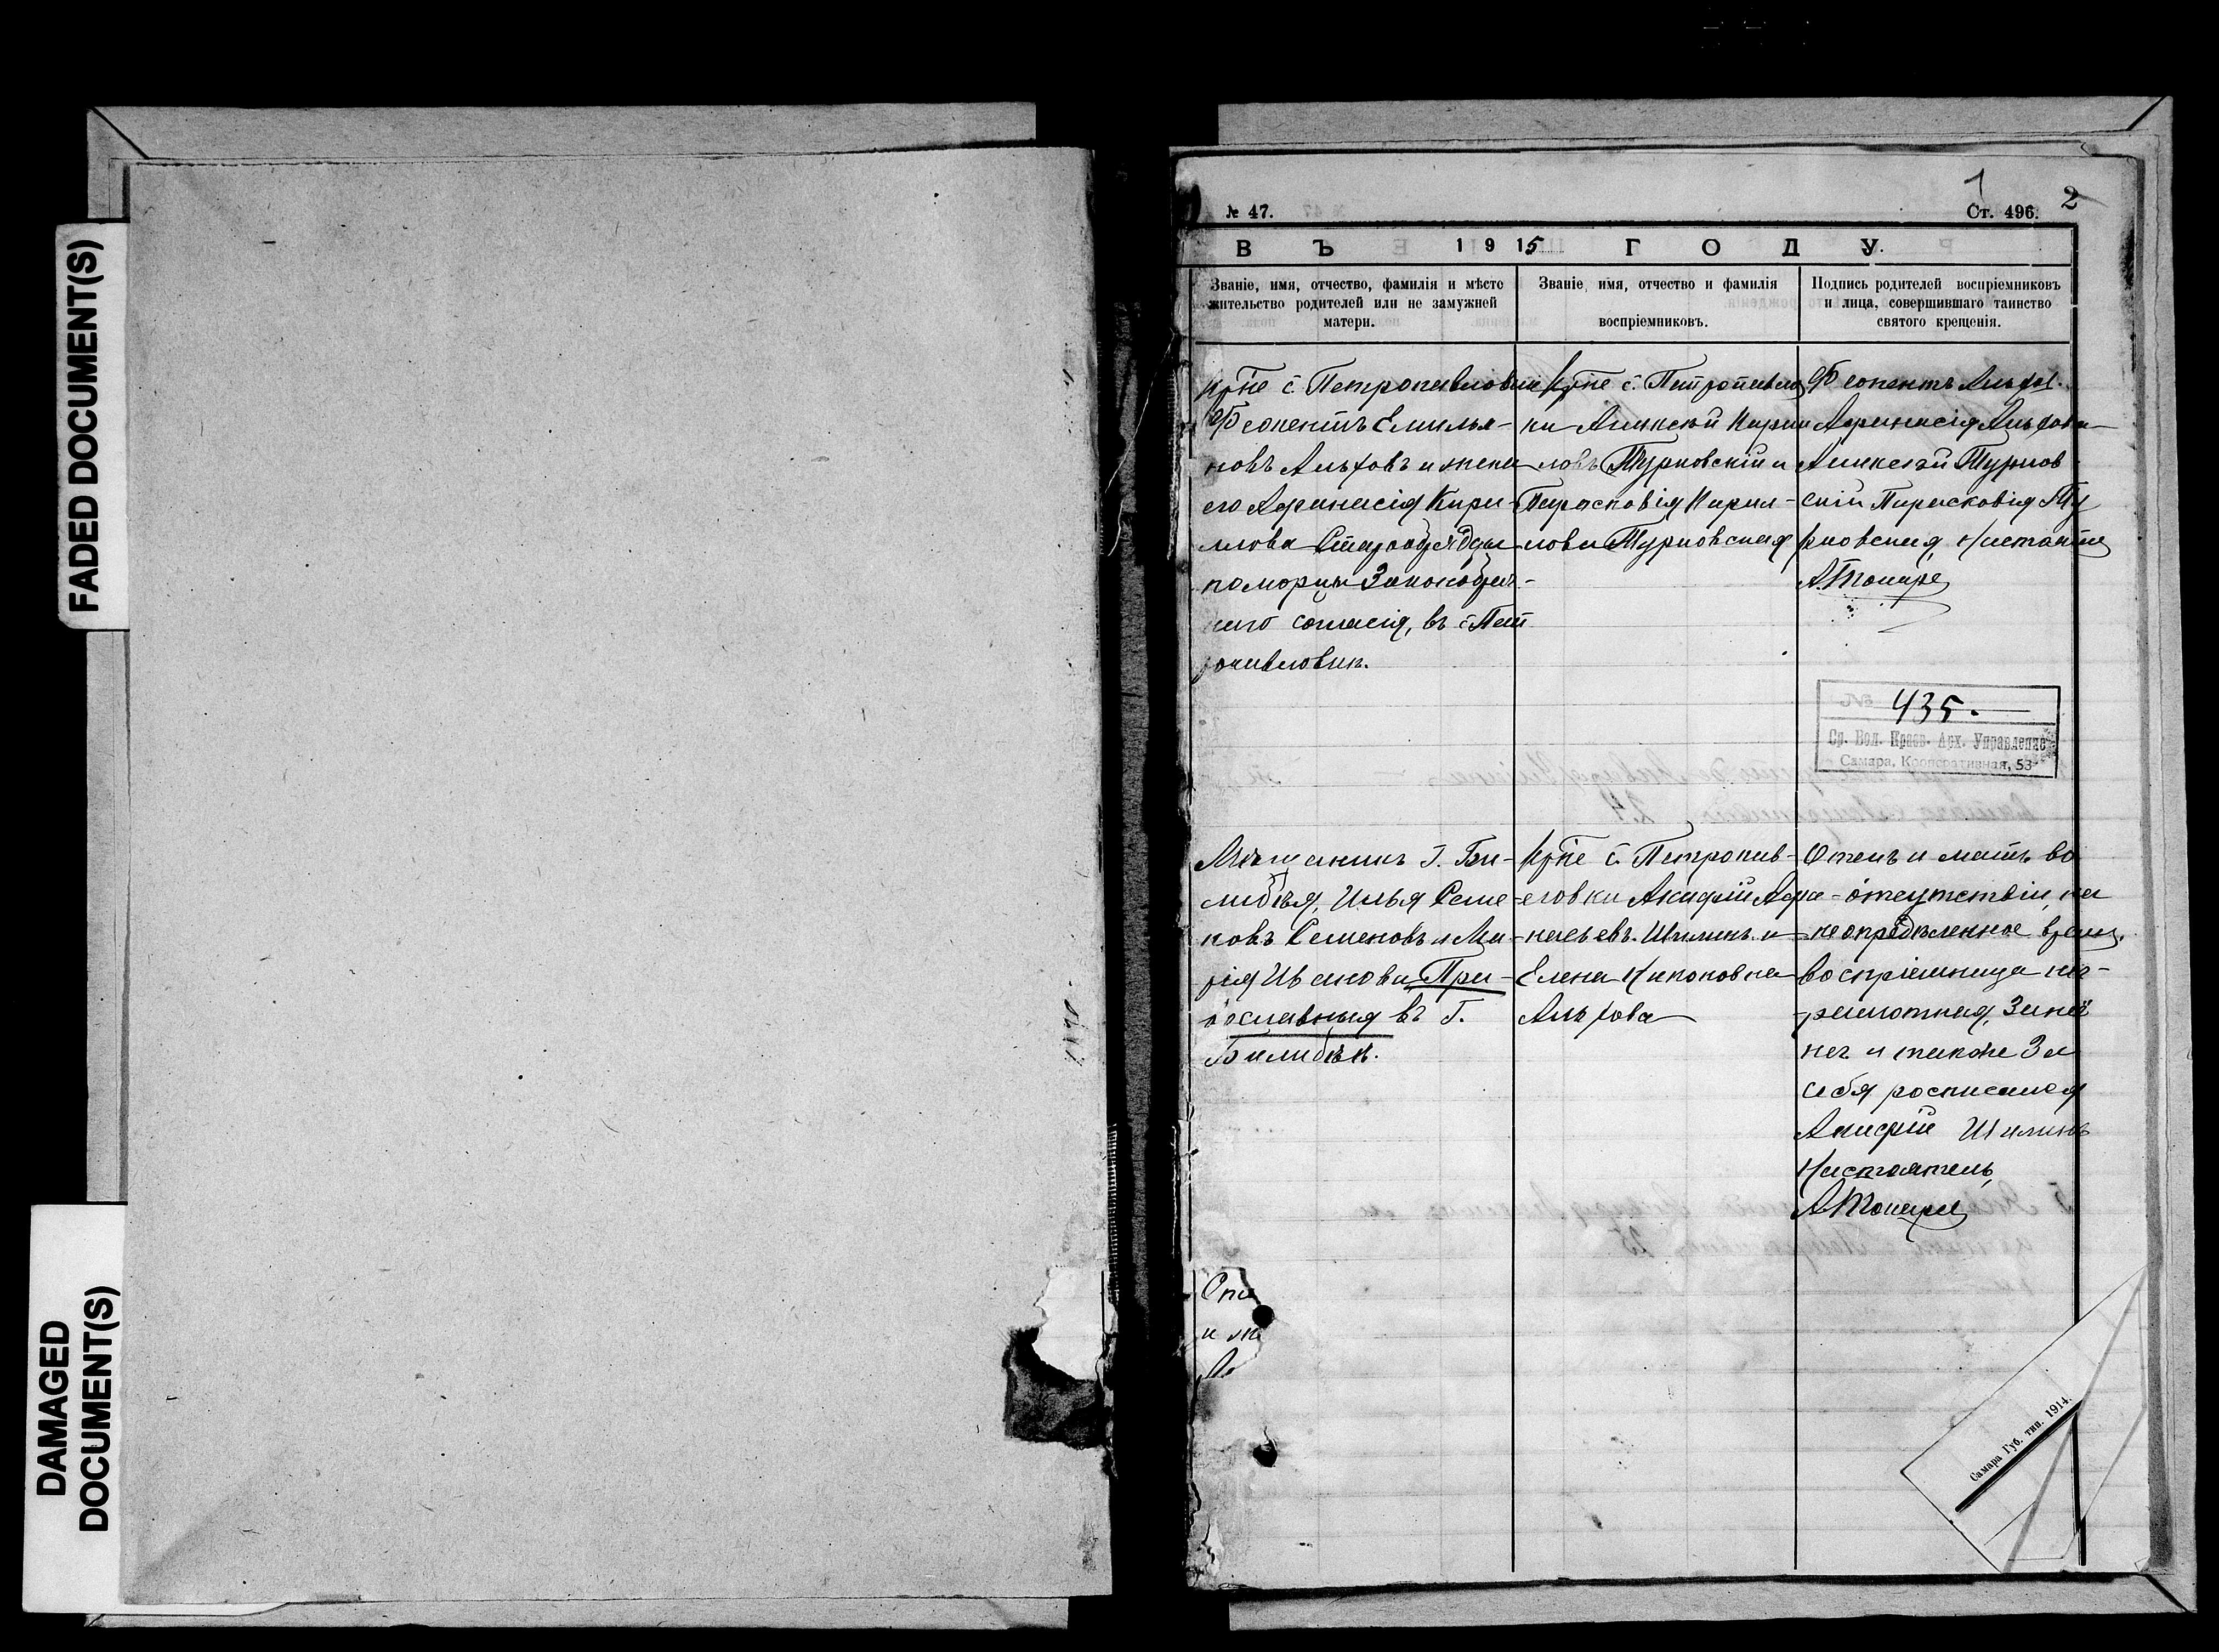 FADED DOCUMENT(S)
DAMAGED
DOCUMENT(S)
1
2
№ 47.
Ст. 496.
ВЪ 1915 ГОДУ.
Званіе, имя, отчество, фамилія и мѣсто
жительство родителей или не замужней
матери.
Званіе, имя, отчество и фамилія
воспріемниковъ.
Подпись родителей воспріемниковъ
и лица, совершившаго таинство
святого крещенія.
Крт̃не с. Петропавловки
Ѳеопентъ Емилья-
новъ Альховъ и жена
его Афанасія Кири-
ллова Старообрядцы
поморцы Законобрач-
наго согласія, въ с. Пет
ропавловки.
Крт̃не с. Петропавлов
ки Алексѣй Кирил
ловъ Турновскій и
Парасковія Кирил-
лова Турновская
Ѳеопентъ Альхов.
Афанасія Альхова
Алексѣй Турнов
скій Параковія Ту
рновская, Настоятель
А. Токарев
435.
Ср. Вол. Краев. Арх. Управление
Самара, Кооперативная, 53
Мѣщанинъ г. Ба-
лебѣя, Илья Семе-
новъ Семеновъ и Ма-
рія Иванова Пра-
вославныя въ г.
Балибѣѣ.
Крт̃не с. Петропав-
ловки Акифій Афа-
насьевъ Шилинъ и
Елена Никоновна
Альхова
Отецъ и мать во
отсутствіи, на
неопредѣленное время,
воспріемница нег-
рамотная, За неё
нея и также За
себя росписался
Акифій Шилинъ
Настоятель,
А. Токарев
Спи
и же
Самара Губ. тип. 1914.